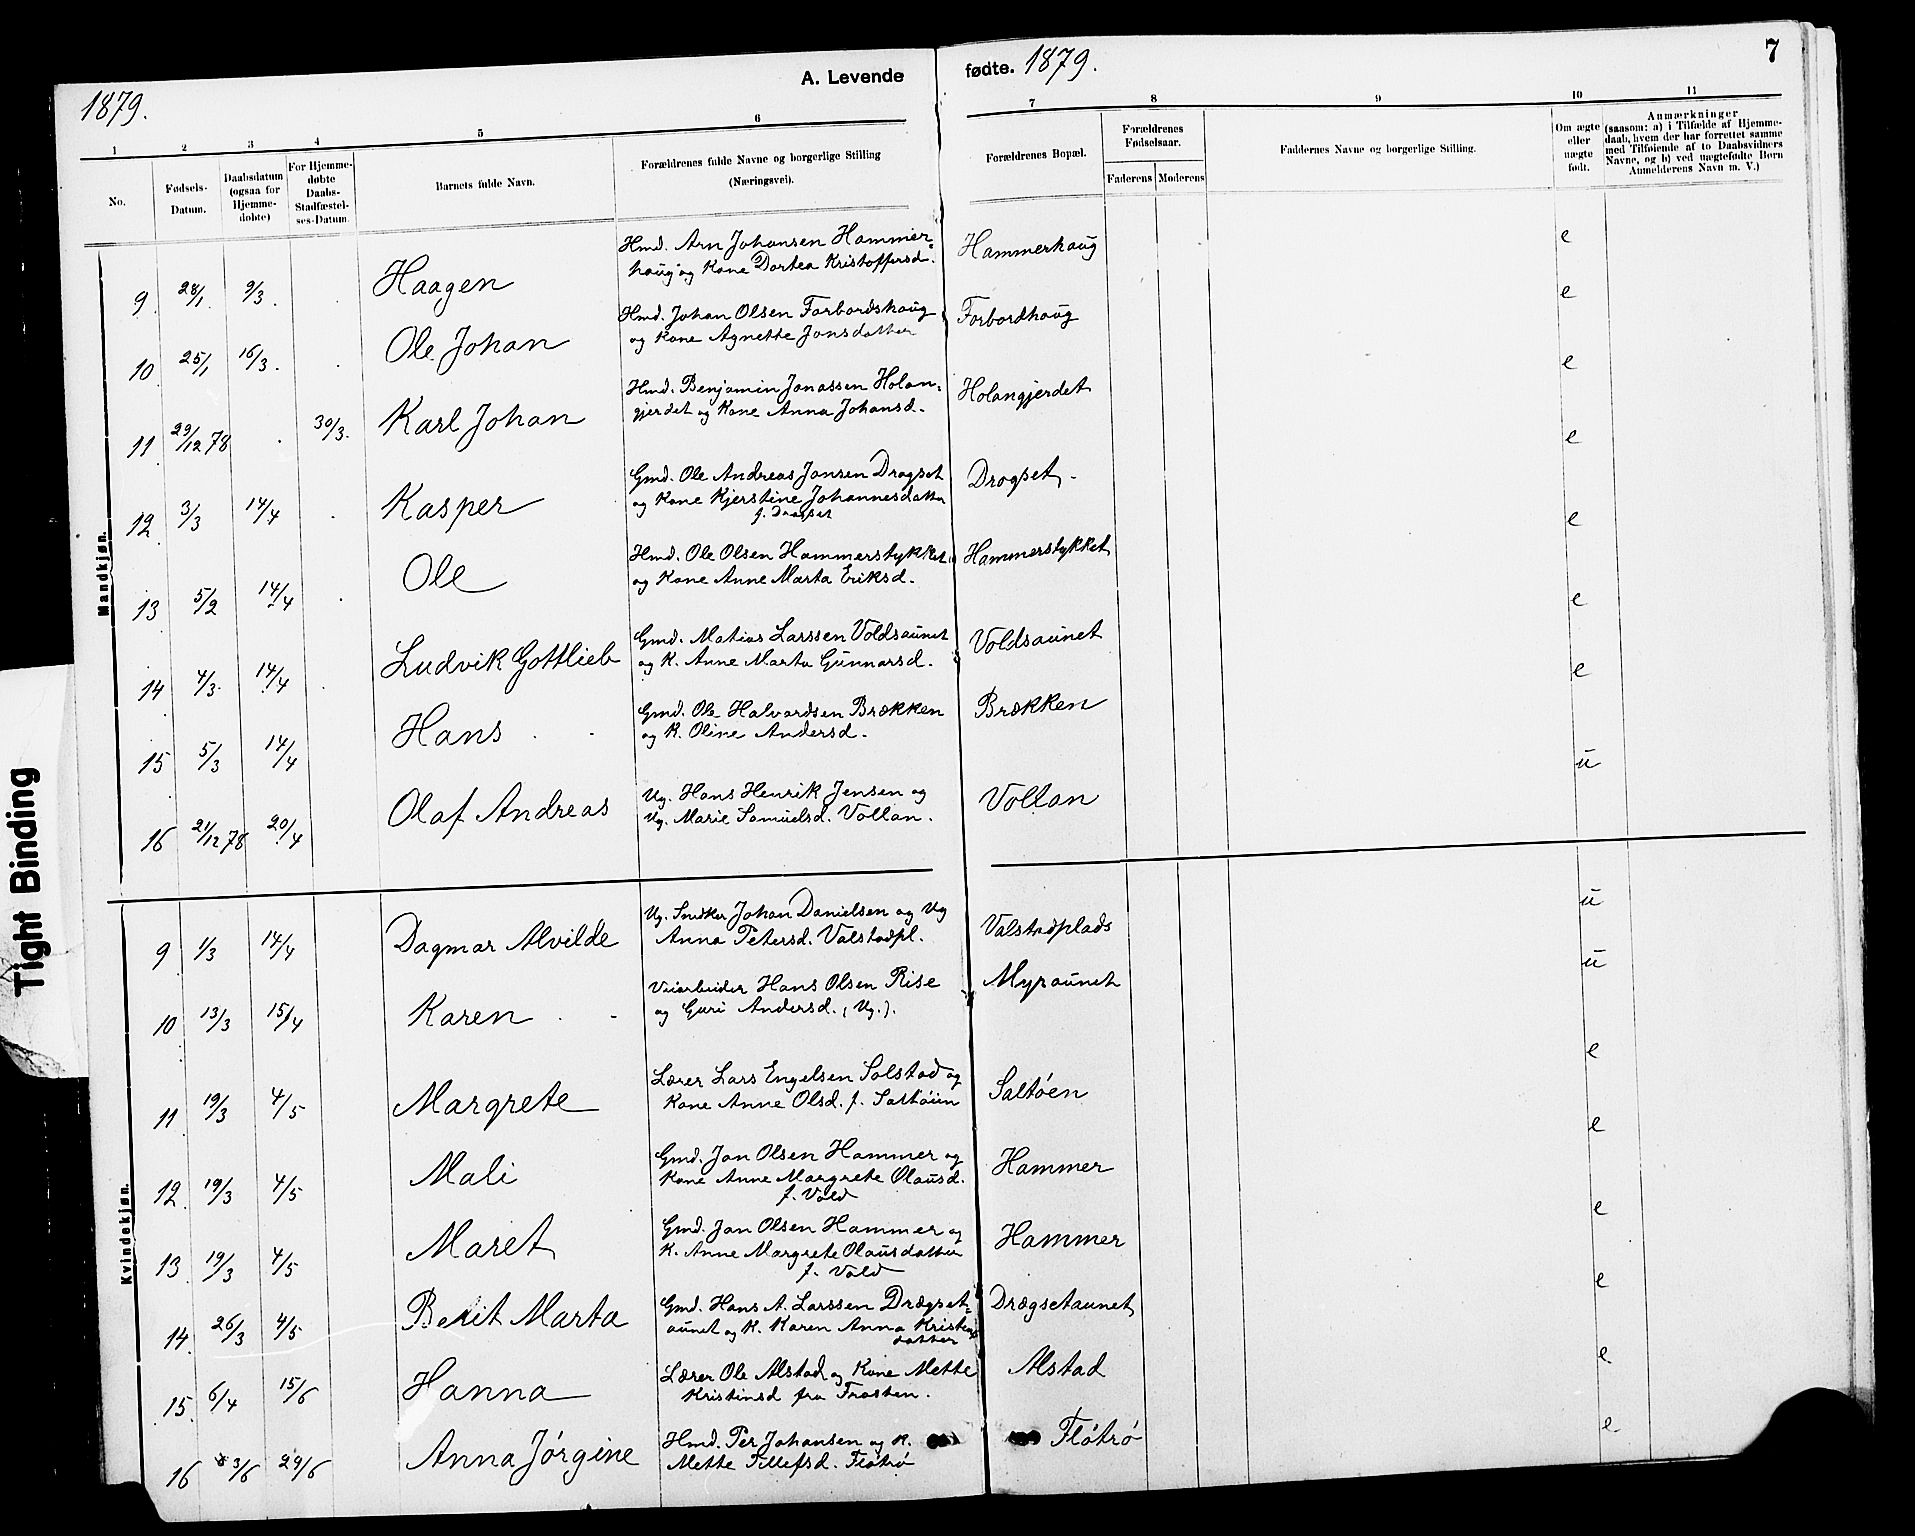 A. Levende fødte. 1879. 7
1879.
1 2 3 4 5 6 7 8 9 10 11
No.
Fødsels-
Datum.
Daabsdatum
(ogsaa for
Hjemme-
døbte)
For Hjemme-
døbte
Daabs-
Stadfæstel-
ses-Datum.
Barnets fulde Navn.
Forældrenes fulde Navne og borgerlige Stilling
(Næringsvei).
Forældrenes Bopæl.
Forældrenes
Fødselsaar.
Faderens Moderens
Faddernes Navne og borgerlige Stilling.
Om ægte
eller
uægte
født.
Anmærkninger
(saasom: a) i Tilfælde af Hjemme-
daab, hvem der har forrettet samme
med Tilføiende af to Daabsvidners
Navne, og b) ved uægtefødte Børn
Anmelderens Navn m. V.)
Mandkjøn.
9 28/1 9/3. Haagen Hmd. Arn Johansen Hammer= Hammerhaug e
haug og Kone Dortea Kristoffersd.
10 25/1 16/3. Ole Johan Hmd. Johan Olsen Forbordshaug Forbordhaug e
og Kone Agnette Jonsdatter
11 29/12 78 30/3. Karl Johan Hmd. Benjamin Jonassen Holan= Holangjerdet e
gjerdet og Kone Anna Johansd.
12 3/3 14/4 Kasper Gmd. Ole Andreas Jonsen Dragset Dragset. e
og Kone Kjerstine Johannesdatter
f. Dragset
13 5/2 14/4 Ole Hmd. Ole Olsen Hammerstykket Hammerstykket e
og Kone Anne Marta Eriksd.
14 4/3. 14/4 Ludvik Gottlieb Gmd. Matias Larssen Voldsaunet Voldsaunet e
og K. Anne Marta Gunnarsd.
15 5/3 14/4 Hans Gmd. Ole Halvardsen Brækken Brækken e
og K. Oline Andersd.
16 21/12 78 20/4 Olaf Andreas Ug. Hans Henrik Jensen og Vollan u
Ug. Marie Samuelsd. Vollan.
Kvindekjøn.
9 1/3 14/4 Dagmar Alvilde Ug. Snedker Johan Danielsen og Ug Valstadplads u
Anna Petersd. Valstadpl.
10 13/3 15/4 Karen Veiarbeider Hans Olsen Rise Myraunet u
og Guri Andersd. (Ug.).
11 19/3 4/5 Margrete Lærer Lars Engelsen Solstad og Saltøen e
Kone Anne Olsd. f. Saltøien
12 19/3 4/5 Mali Gmd. Jon Olsen Hammer og Hammer e
Kone Anne Margrete Olausd.
f. Vold
13 19/3 4/5 Maret Gmd. Jon Olsen Hammer og Hammer e
K. Anne Margrete Olausdatter
f. Vold
14 26/3 4/5 Berit Marta Gmd. Hans A. Larssen Drægset= Drægsetaunet e
aunet og K. Karen Anna Kristens
datter
15 6/4 15/6 Hanna Lærer Ole Alstad og Kone Mette Alstad e
Kristinsd fra Frosten.
16 3/6 29/6 Anna Jørgine Hmd. Per Johansen og K. Fløtrø e
Mette Tillefsd. Fløtrø
Tight Binding